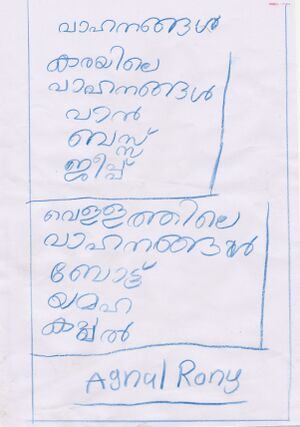 വാഹനങ്ങൾ
കരയിലെ
വാഹനങ്ങൾ
വാൻ
ബസ്സ്
ജീപ്പ്
വെള്ളത്തിലെ
വാഹനങ്ങൾ
ബോട്ട്
യമഹ
കപ്പൽ
Agnal Rony